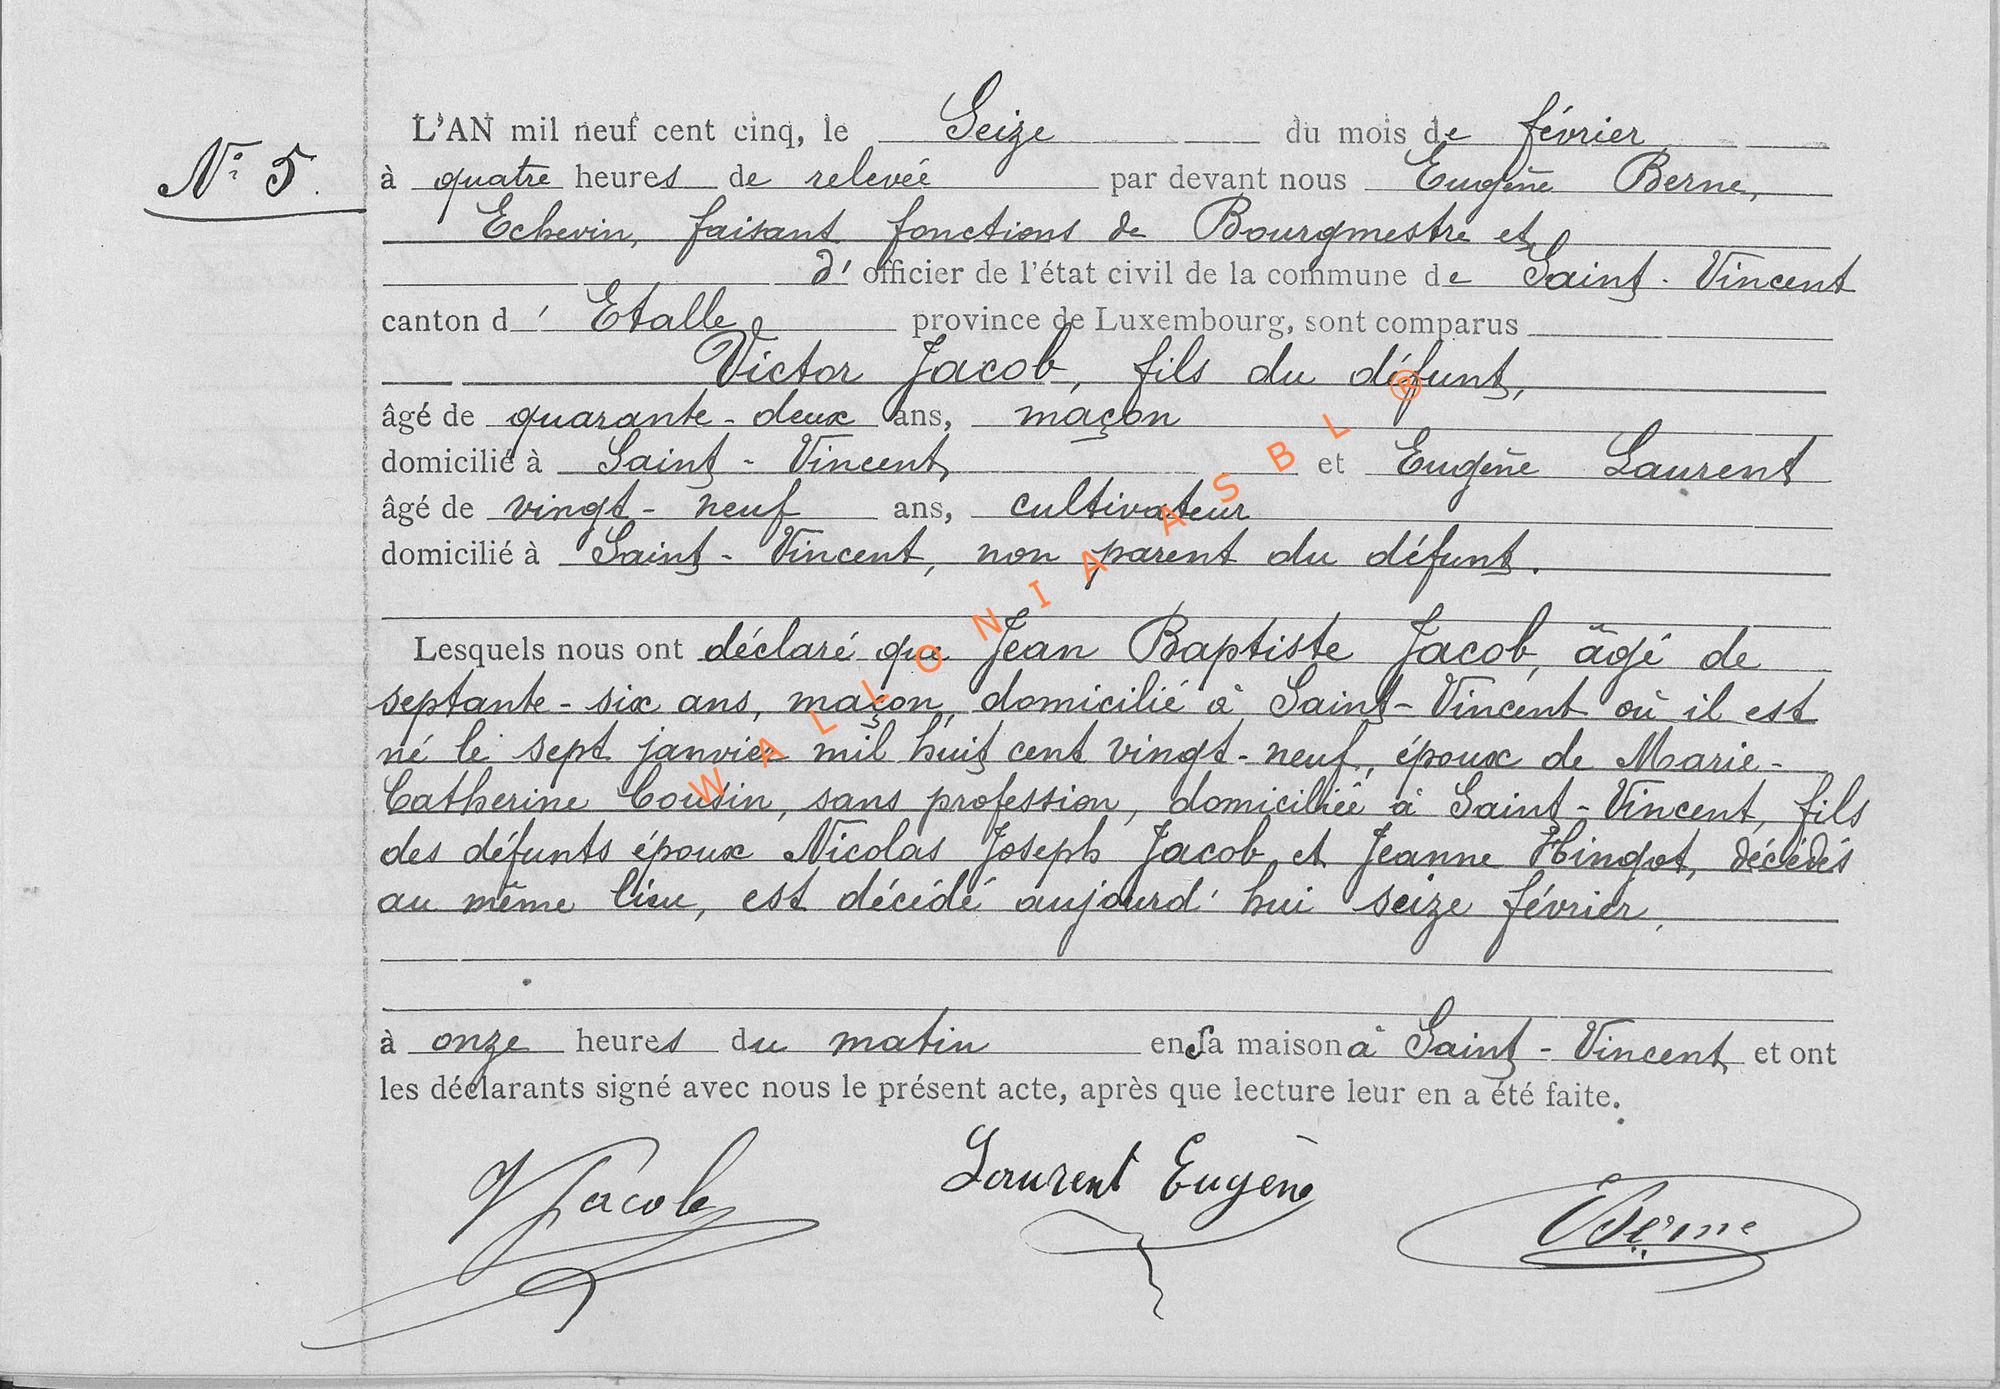 N° 5.
L'AN mil neuf cent cinq, le Seize du mois de février
à quatre heures de relevée par devant nous Eugène Berne,
Echevin, faisant fonctions de Bourgmestre et
d' officier de l'état civil de la commune de Saint-Vincent
canton d' Etalle province de Luxembourg, sont comparus
Victor Jacob, fils du défunt,
âgé de quarante-deux ans, maçon
domicilié à Saint-Vincent et Eugène Laurent
âgé de vingt-neuf ans, cultivateur
domicilié à Saint-Vincent, non parent du défunt.
Lesquels nous ont déclaré que Jean Baptiste Jacob, âgé de
septante-six ans, maçon, domicilié à Saint-Vincent où il est
né le sept janvier mil huit cent vingt-neuf, époux de Marie-
Catherine Cousin, sans profession, domiciliée à Saint-Vincent, fils
des défunts époux Nicolas Joseph Jacob et Jeanne Hingot, décédés
au même lieu, est décédé aujourd'hui seize février,
à onze heures du matin en sa maison à Saint-Vincent et ont
les déclarants signé avec nous le présent acte, après que lecture leur en a été faite.
VJacob Laurent Eugène Berne
WALLONIA ASBL ®